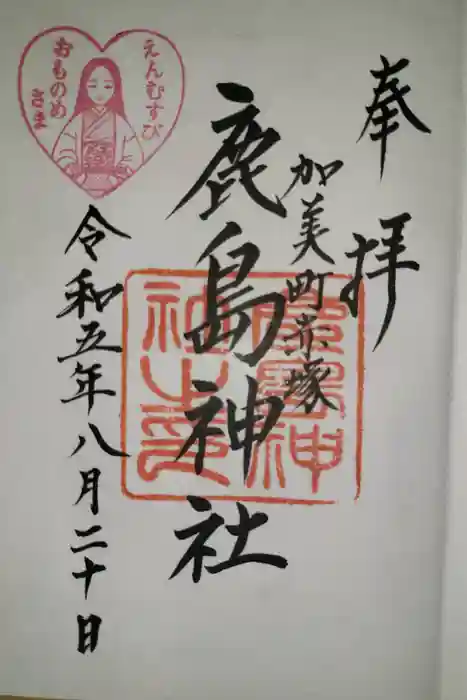 奉拝
加美町赤塚
鹿島神社
令和五年八月二十日
えんむすび
おものめ
さま